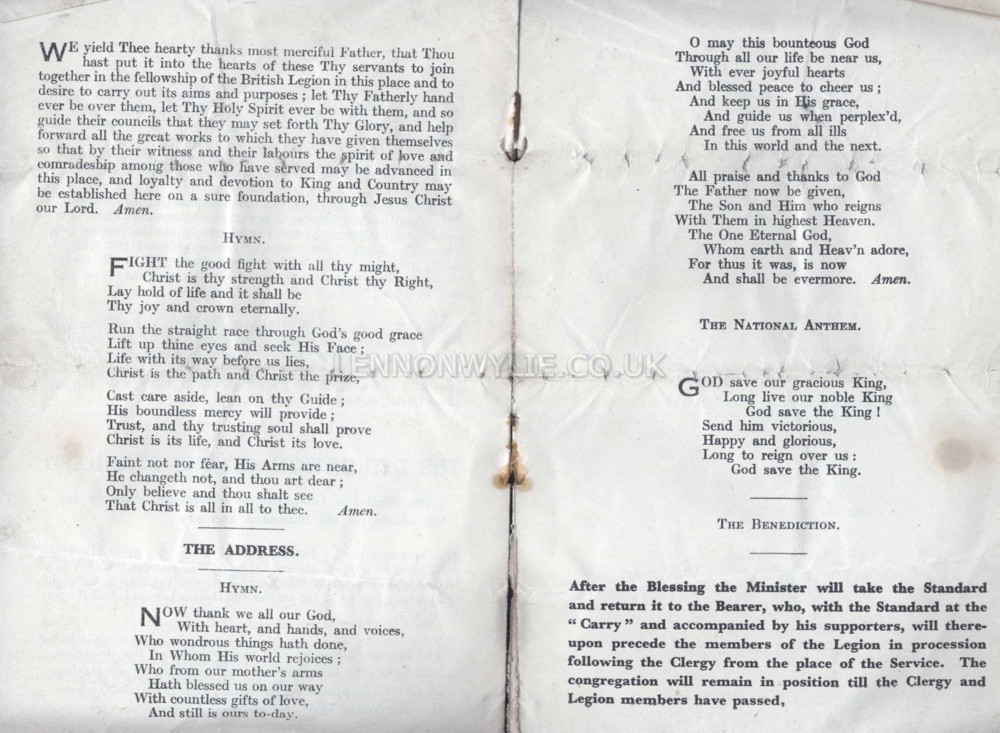 WE yield Thee hearty thanks most merciful Father, that Thou
hast put it into the hearts of these Thy servants to join
together in the fellowship of the British Legion in this place and to
desire to carry out its aims and purposes ; let Thy Fatherly hand
ever be over them, let Thy Holy Spirit ever be with them, and so
guide their councils that they may set forth Thy Glory, and help
forward all the great works to which they have given themselves
so that by their witness and their labours the spirit of love and
comradeship among those who have served may be advanced in
this place, and loyalty and devotion to King and Country may
be established here on a sure foundation, through Jesus Christ
our Lord. Amen.
HYMN.
FIGHT the good fight with all thy might,
Christ is thy strength and Christ thy Right,
Lay hold of life and it shall be
Thy joy and crown eternally.
Run the straight race through God's good grace
Lift up thine eyes and seek His Face ;
Life with its way before us lies,
Christ is the path and Christ the prize,
Cast care aside, lean on thy Guide ;
His boundless mercy will provide ;
Trust, and thy trusting soul shall prove
Christ is its life, and Christ its love.
Faint not nor fear, His Arms are near,
He changeth not, and thou art dear ;
Only believe and thou shalt see
That Christ is all in all to thee. Amen.
THE ADDRESS.
HYMN.
NOW thank we all our God,
With heart, and hands, and voices,
Who wondrous things hath done,
In Whom His world rejoices ;
Who from our mother's arms
Hath blessed us on our way
With countless gifts of love,
And still is ours to-day.
O may this bounteous God
Through all our life be near us,
With ever joyful hearts
And blessed peace to cheer us ;
And keep us in His grace,
And guide us when perplex'd,
And free us from all ills
In this world and the next.
All praise and thanks to God
The Father now be given,
The Son and Him who reigns
With Them in highest Heaven.
The One Eternal God,
Whom earth and Heav'n adore,
For thus it was, is now
And shall be evermore. Amen.
THE NATIONAL ANTHEM.
GOD save our gracious King,
Long live our noble King
God save the King !
Send him victorious,
Happy and glorious,
Long to reign over us :
God save the King.
THE BENEDICTION.
After the Blessing the Minister will take the Standard
and return it to the Bearer, who, with the Standard at the
“ Carry ” and accompanied by his supporters, will there-
upon precede the members of the Legion in procession
following the Clergy from the place of the Service. The
congregation will remain in position till the Clergy and
Legion members have passed,
LENNONWYLIE.CO.UK